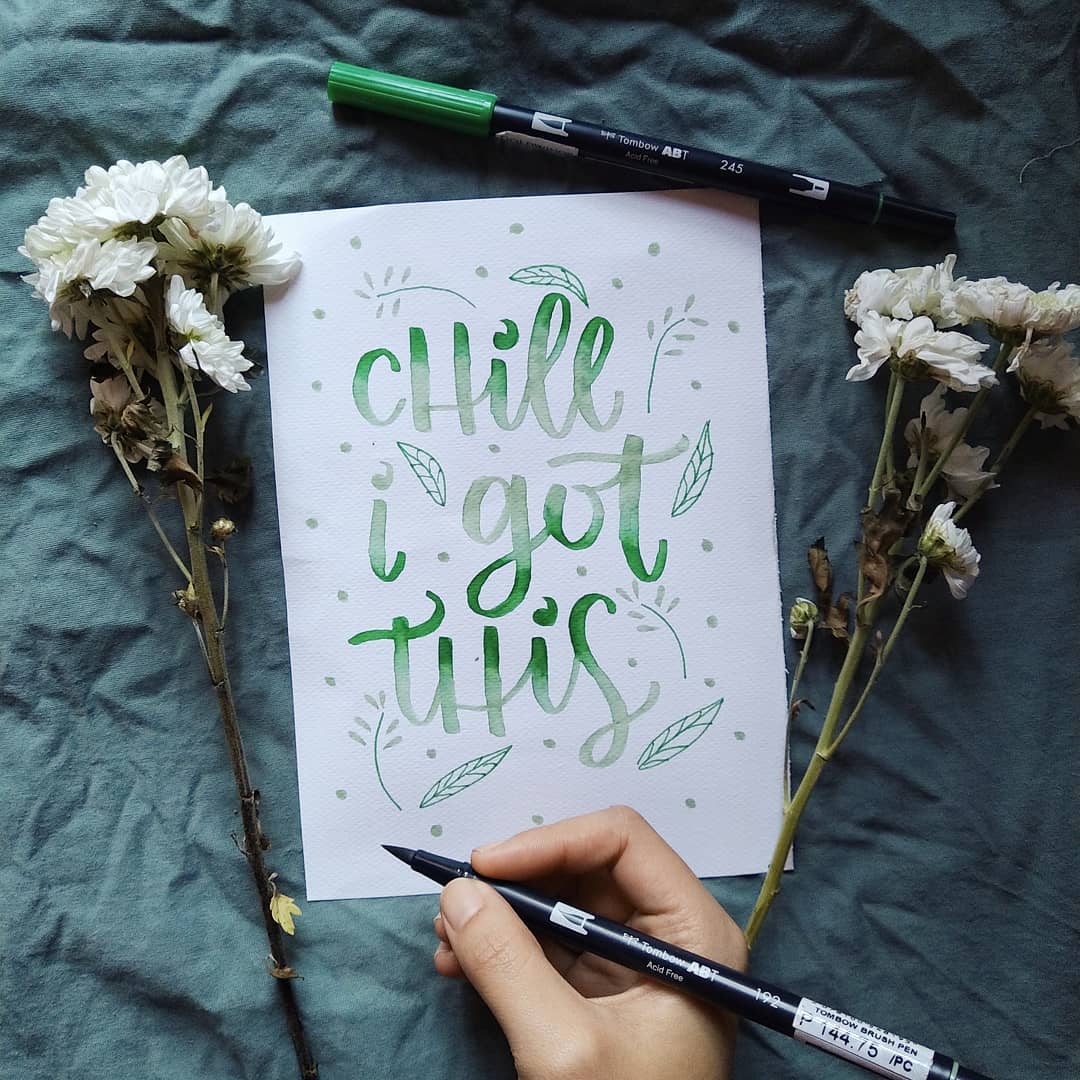 Tombow ABT 245
Acid Free
CHill
i got
THis
Tombow ABT 192
Acid Free
TOMBOW BRUSH PEN
P 144.75 /PC